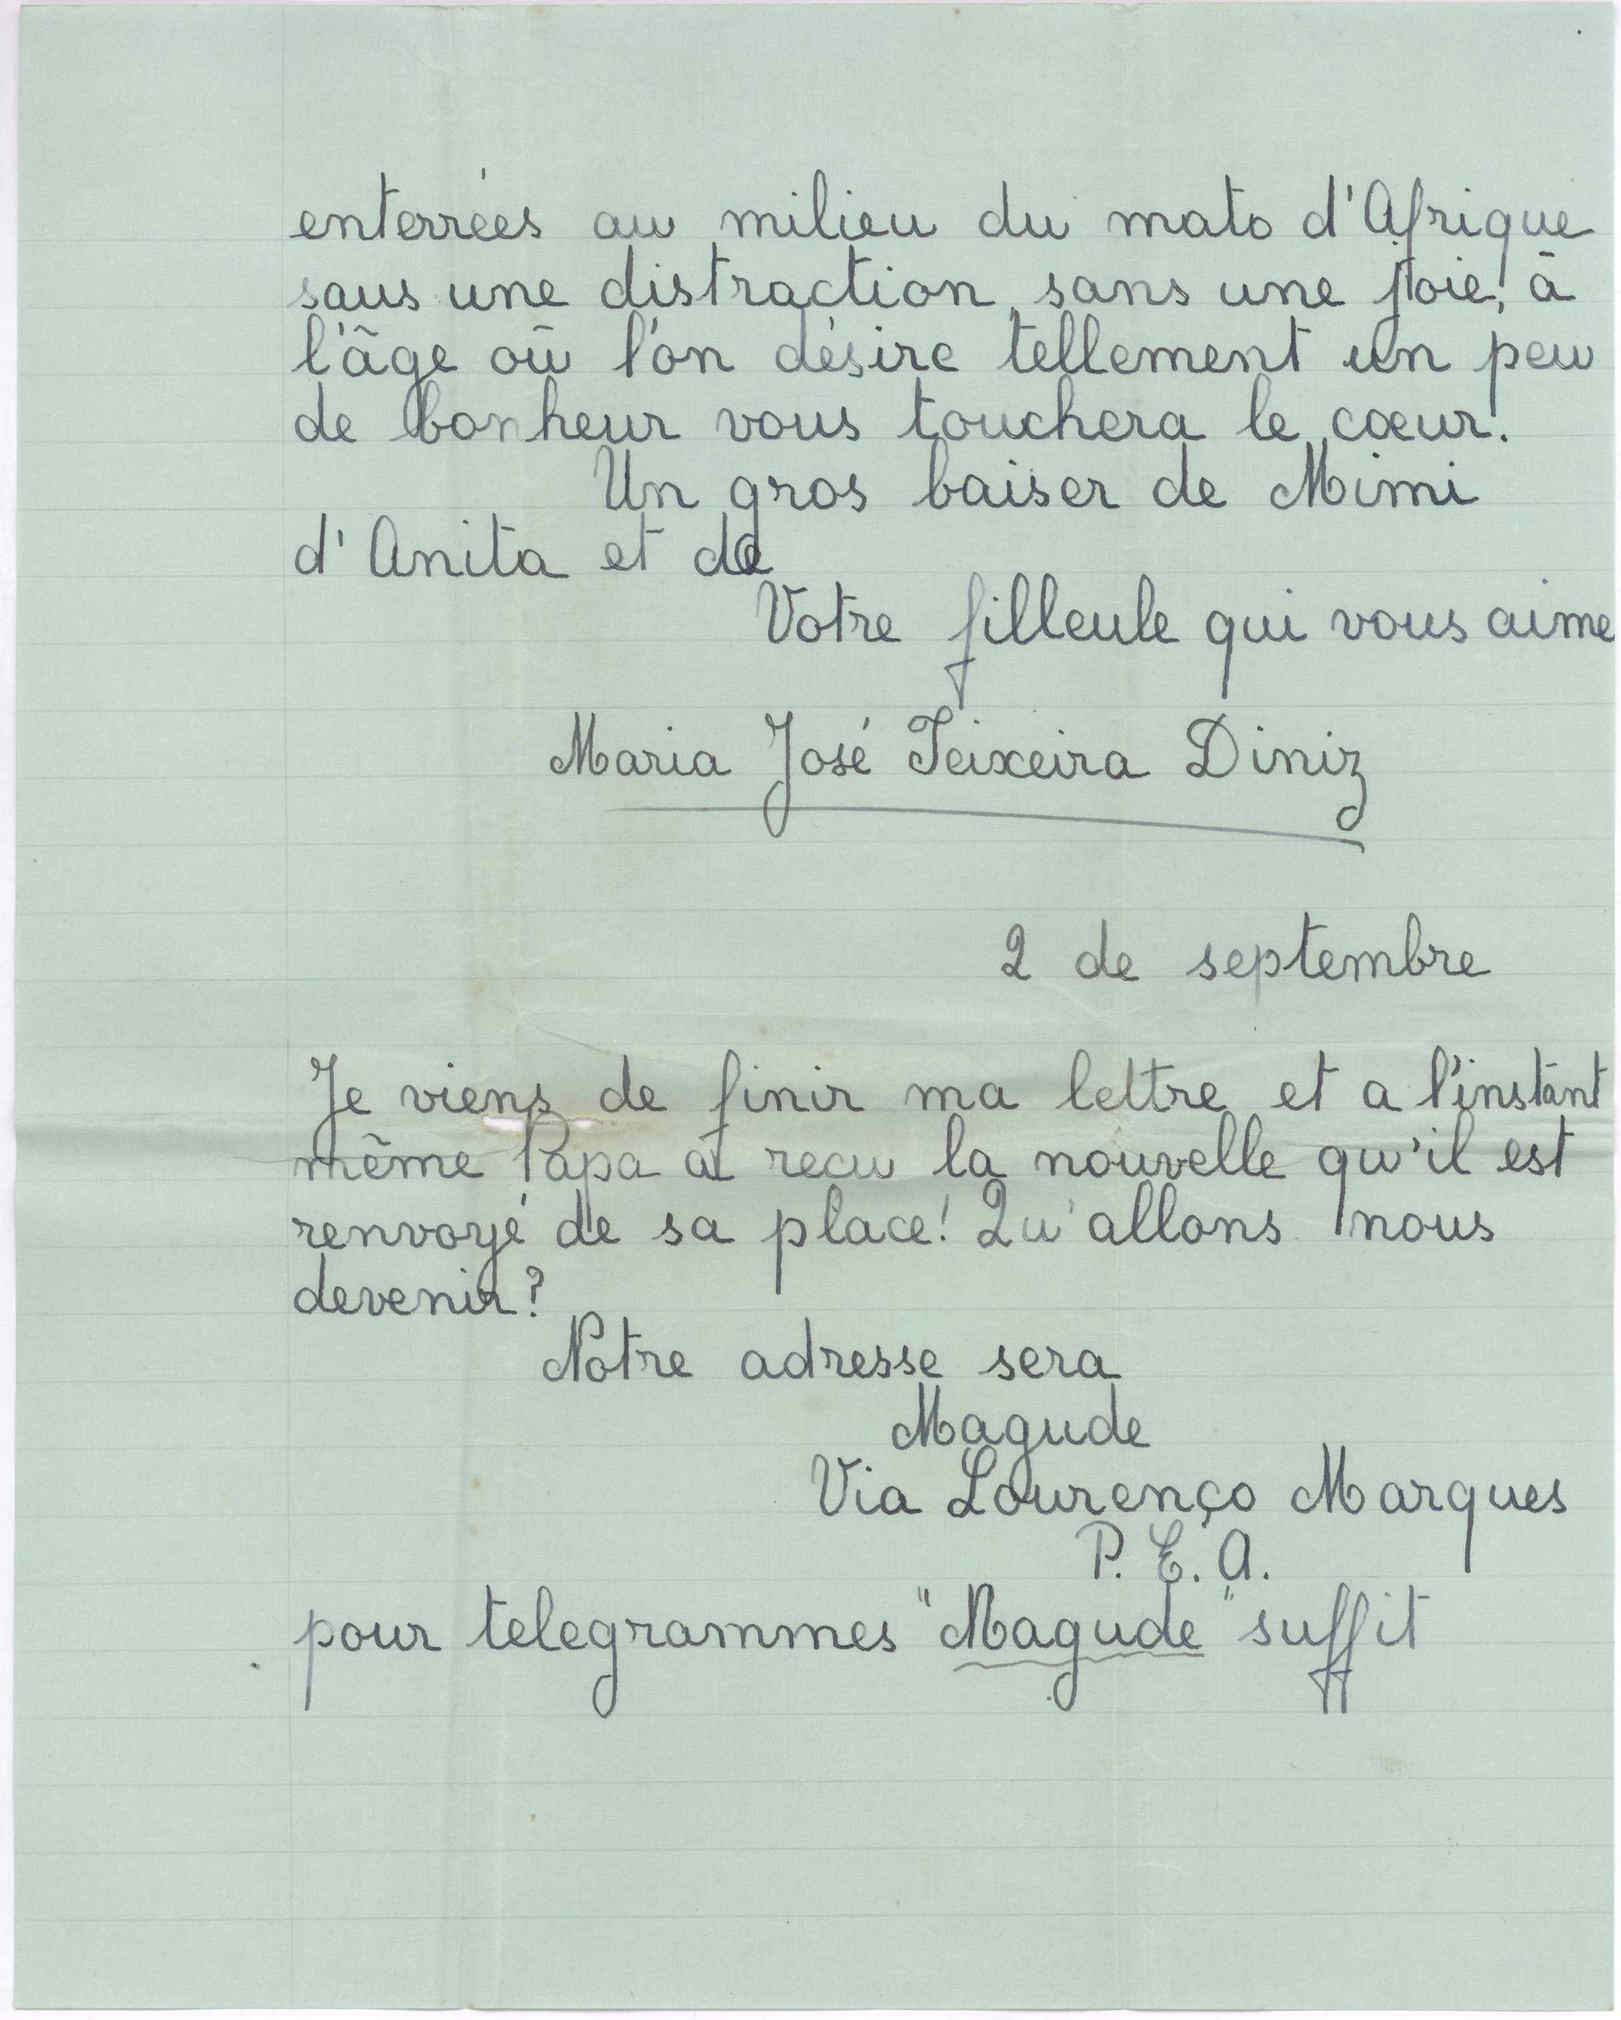 enterrées au milieu du mato d'Afrique
sans une distraction, sans une joie, à
l'âge où l'on désire tellement un peu
de bonheur vous touchera le cœur.
Un gros baiser de Mimi
d'Anita et de
Votre filleule qui vous aime
Maria José Teixeira Diniz
2 de septembre
Je viens de finir ma lettre et a l'instant
même Papa a recu la nouvelle qu'il est
renvoyé de sa place! Qu'allons nous
devenir?
Notre adresse sera
Magude
Via Lourenço Marques
P. E. A.
pour telegrammes "Magude" suffit